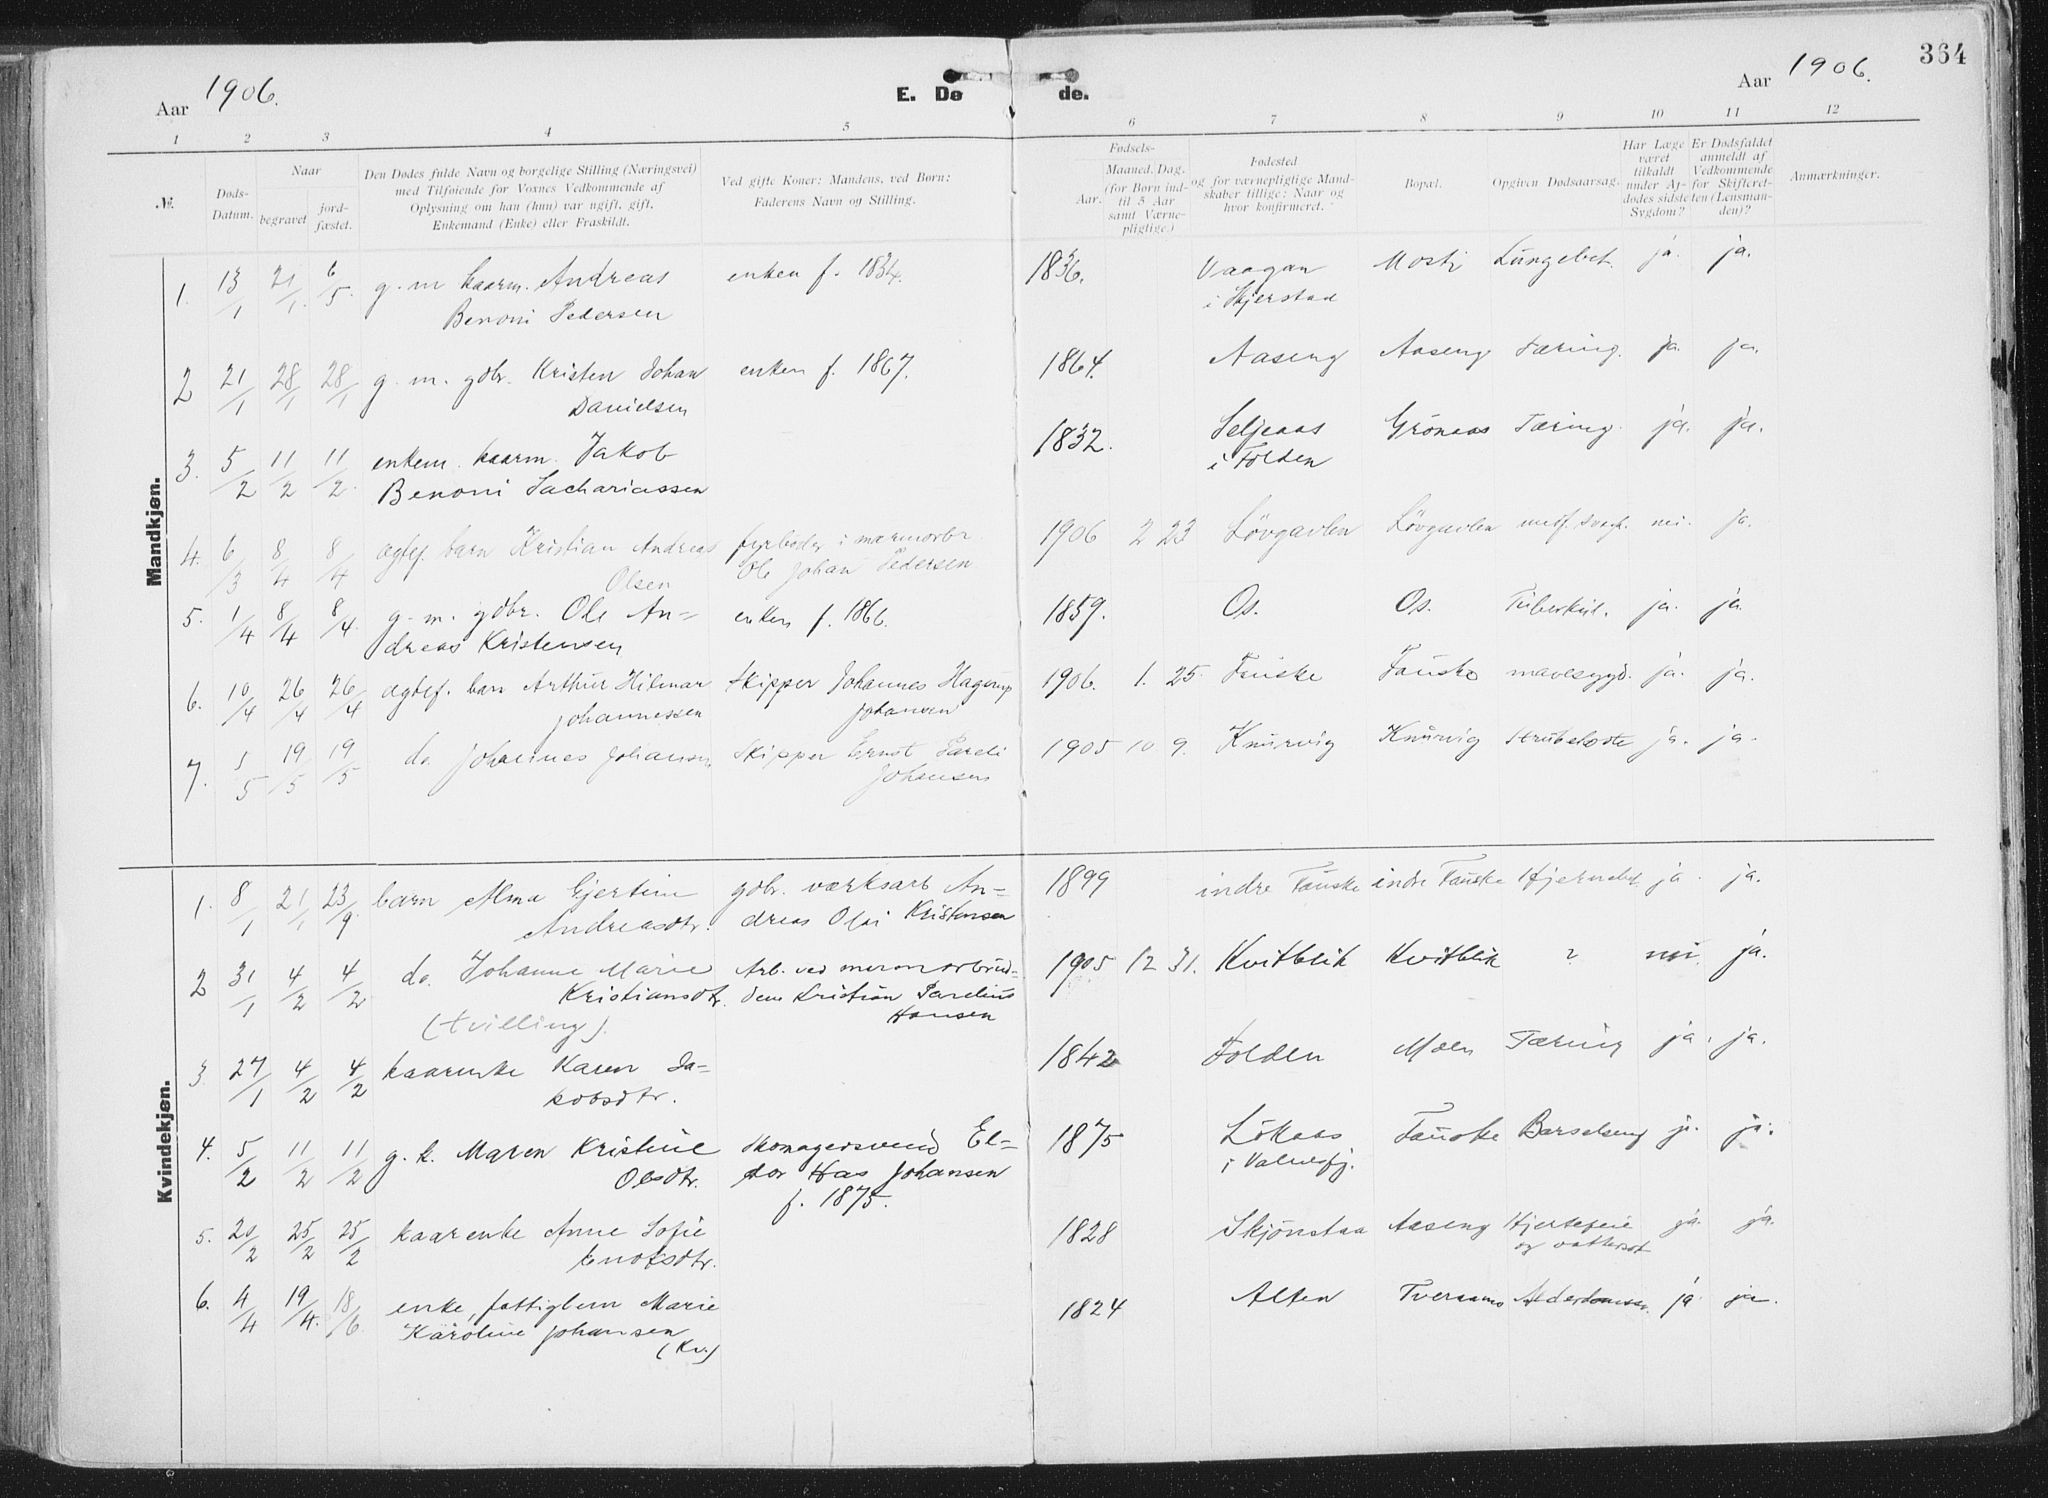 364
Aar 1906.
E. Dø de.
Aar 1906.
1 2 3 4 5 6 7 8 9 10 11 12
№.
Døds-Datum.
Naar
begravet
jord-fæstet.
Den Dødes fulde Navn og borgelige Stilling (Næringsvei)
med Tilføiende for Voxnes Vedkommende af
Oplysning om han (hun) var ugift, gift,
Enkemand (Enke) eller Fraskildt.
Ved gifte Koner: Mandens, ved Børn:
Faderens Navn og Stilling.
Fødsels-
Aar.
Maaned. Dag.
(for Børn ind-
til 5 Aar
samt Værne-
pligtige.)
Fødested
og for værnepligtige Mand-
skaber tillige: Naar og
hvor konfirmeret.
Bopæl.
Opgiven Dødsaarsag.
Har Læge
været
tilkaldt
under Af-
dødes sidste
Sygdom?
Er Dødsfaldet
anmeldt af
Vedkommende
for Skifteret-
ten (Lensman-
den)?
Anmærkninger.
Mandkjøn.
1. 13/1 21/1. 6/5. g. m kaarm. Andreas enken f. 1834. 1836. Vaagan Lungebet. ja. ja.
Benoni Pedersen i Skjerstad
2 21/1 28/1 28/1 g. m. gdbr. Kristen Johan enken f. 1867. 1864. Aaseng Aaseng Tæring. ja. ja.
Danielsen
3. 5/2 11/2 11/2. enkem. kaarm. Jakob 1832. Seljeaas Grönaas Tæring. ja. ja.
Benoni Sachariassen i Folden
4. 6/3 8/4 8/4 ægtef. barn Kristian Andreas fyrböder i marmorbr. 1906 2 23 Lövgavlen Lövgavlen medf. svagh. nei. ja.
Olsen Ole Johan Pedersen
5. 1/4 8/4 8/4. g. m. gdbr. Ole An= enken f. 1866. 1859. Os. Os. Tuberkul. ja. ja.
dreas Kristensen
6. 10/4 26/4 26/4 ægtef. barn Arthur Hilmar Skipper Johannes Hagerup 1906. 1. 25. Fauske Fauske mavesygd. ja. ja.
Johannessen Johansen
7. 5/5 19/5 19/5 do Johannes Johansen Skipper Ernst Pareli 1905 10 9. Knurvig Knurvig Strubehoste ja. ja.
Johansen
Kvindekjøn.
1. 8/1 21/1 23/9. barn Alma Gjertine gdbr. værksarb An= 1899 indre Fauske indre Fauske Hjernebet. ja. ja.
Andreasdtr. dreas Olai Kristensen
2 31/1 4/2 4/2 do. Johanne Marie Arb. ved marmorbrud= 1905 12 31. Kvitblik Kvitblik ? nei. ja.
Kristiansdtr. dene Kristian Parelius
(tvilling). Hansen
3 27/1 4/2 4/2 kaarenke Karen Ja= 1842 Folden Moen Tæring ja. ja.
kobsdtr.
4. 5/2 11/2 11/2 g. k. Maren Kristine Skomagersvend El= 1875 Lökaas Fauske Barselseng ja. ja.
Olsdtr. dor Has Johansen i Valnesfj.
f. 1875.
5. 20/2 25/2 25/2 kaarenke Anne Sofie 1828 Skjönstaa Aaseng Hjertefeil ja. ja.
Enoksdtr. og vattersot
6. 4/4 19/4. 18/6 enke, fattiglem Marie 1824 Alten Tveraamo Alderdomssv. ja ja.
Karoline Johansen
(Kv.)